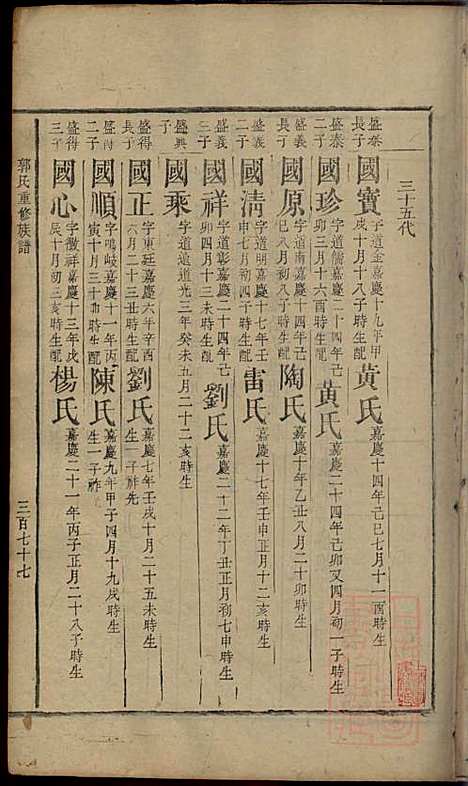 三十五代
盛泰長子 國寶 字道金嘉慶十九年甲戌十月十八子時生配 黃氏 嘉慶十四年己巳七月十一酉時生
盛泰二子 國珍 字道儒嘉慶二十四年己卯三月十六酉時生配 黃氏 嘉慶二十四年己卯又四月初一子時生
盛義長子 國原 字道南嘉慶十四年己巳八月初八子時生配 陶氏 嘉慶十年乙丑八月二十卯時生
盛義二子 國清 字道明嘉慶十七年壬申七月初四子時生配 雷氏 嘉慶十七年壬申正月十二亥時生
盛義三子 國祥 字道彰嘉慶二十四年己卯四月十三未時生配 劉氏 嘉慶二十二年丁丑正月初七申時生
盛興子 國乘 字道遠道光三年癸未五月二十二亥時生
盛得長子 國正 字東廷嘉慶六年辛酉六月二十三丑時生配 劉氏 嘉慶七年壬戌十月二十五未時生生一子祚先
盛得二子 國順 字鳴岐嘉慶十一年丙寅十月三十卯時生配 陳氏 嘉慶九年甲子四月十九戌時生生一子祚
盛得三子 國心 字徹祥嘉慶十三年戊辰十月初三亥時生配 楊氏 嘉慶二十一年丙子正月二十八子時生
郭氏重修族譜
三百七十七